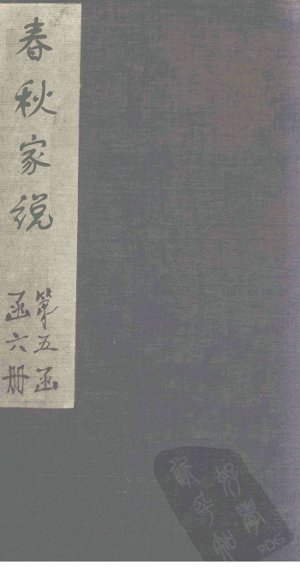 春秋家說
第五函
函六册
PDG